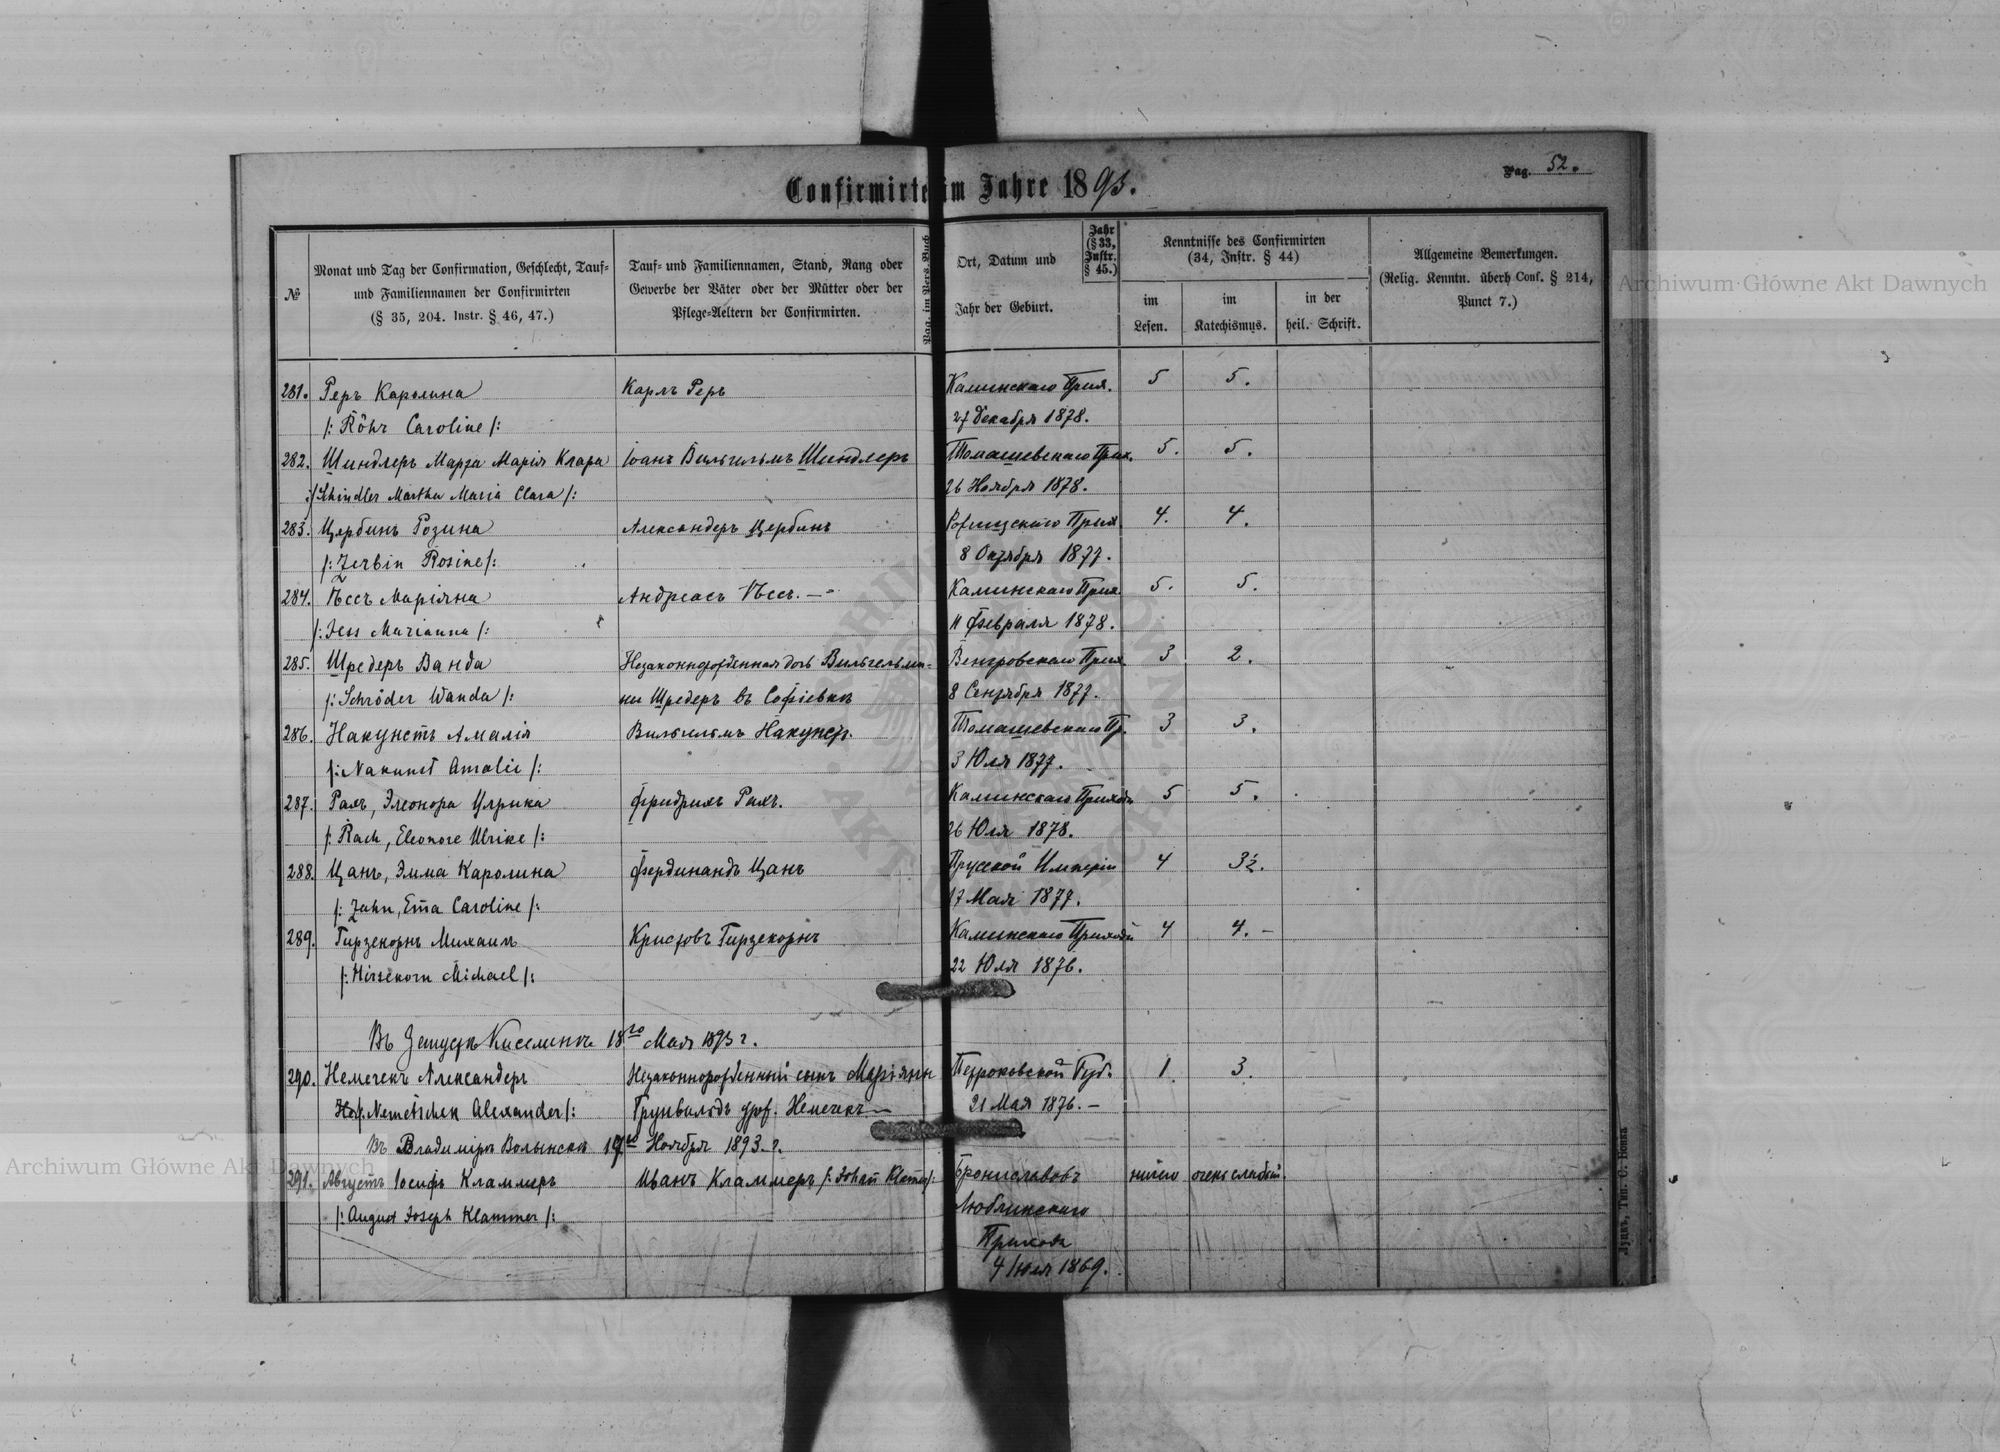 Confirmirte im Jahre 1893.
Pag. 52.
№
Monat und Tag der Confirmation, Geschlecht, Tauf-
und Familiennamen der Confirmirten
(§ 35, 204. Instr. § 46, 47.)
Tauf- und Familiennamen, Stand, Rang oder
Gewerbe der Väter oder der Mütter oder der
Pflege-Aeltern der Confirmirten.
Pag. im Pers. Buch
Ort, Datum und
Jahr der Geburt.
Jahr
(§ 33,
Instr.
§ 45.)
Kenntnisse des Confirmirten
(34, Instr. § 44)
im
Lesen.
im
Katechismus.
in der
heil. Schrift.
Allgemeine Bemerkungen.
(Relig. Kenntn. überh Conf. § 214,
Punct 7.)
281. Реръ Каролина Карлъ Реръ Каминскаго Прих. 5 5.
/: Röhr Caroline /: 27 Декабря 1878.
282. Шиндлеръ Марта Марія Клара Іоанъ Вильгельмъ Шиндлеръ Томашевскаго Прих. 5. 5.
/: Schindler Martha Maria Clara /: 26 Ноября 1878.
283. Цербинъ Розина Александеръ Цербинъ Рожищскаго Прих. 4. 4.
/: Zerbin Rosine /: 8 Октября 1877.
284. Ѣссъ Маріяна Андреасъ Ѣссъ. Каминскаго Прих 5. 5.
/: Jess Marianna /: 11 Февраля 1878.
285. Шредеръ Ванда Незаконнорожденная дочь Вильгельми- Венгровскаго Прих 3 2.
/: Schröder Wanda /: ни Шредеръ въ Софіевкѣ 8 Сентября 1877.
286. Накунстъ Амалія Вильгельмъ Накунстъ. Томашевскаго Пр. 3 3.
/: Nakunst Amalie /: 3 Юля 1877.
287. Рахъ, Элеонора Улрика Фридрихъ Рахъ. Каминскаго Прихода 5 5.
/: Rach, Eleonore Ulrike /: 26 Юля 1878.
288. Цанъ, Эмма Каролина Фердинандъ Цанъ Прусской Имперіи 4 3½.
/: Zahn, Em̄a Caroline /: 17 Мая 1877.
289. Гирзекорнъ Михаилъ Кристовъ Гирзекорнъ Каминскаго Прихода 4 4. –
/: Hirsekorn Michael /: 22 Юля 1876.
Въ Киселинъ 18го Мая 1893 г.
290. Немечекъ Александеръ Незаконнорожденный сынъ Маріянн Петроковской Губ. 1. 3.
/: Nemetschek Alexander /: Грунвальдъ урож. Немечекъ 21 Мая 1876. –
Въ Владиміръ Волынскъ Ноября 1893 г.
291. Августъ Іосифъ Кламмеръ Иванъ Кламмеръ /: Johan̄ Klam̄er /: Брониславовъ очень слабый.
/: August Joseph Klammer /: Люблинскаго
Прихода
4 Юля 1869.
Луцкъ, Тип. С. Бонка
Archiwum Główne Akt Dawnych
Archiwum Główne Akt Dawnych